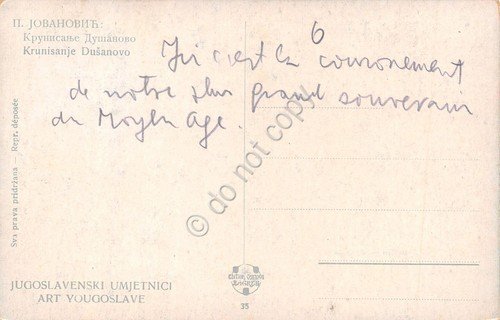 П. ЈОВАНОВИЋ:
Крунисање Душаново
Krunisanje Dušanovo
6
Ici c'est le couronement
de notre plus grand souverain
du Moyen Age.
Sva prava pridržana — Repr. déposée
JUGOSLAVENSKI UMJETNICI
ART YOUGOSLAVE
ZAGREB
35
© do not copy